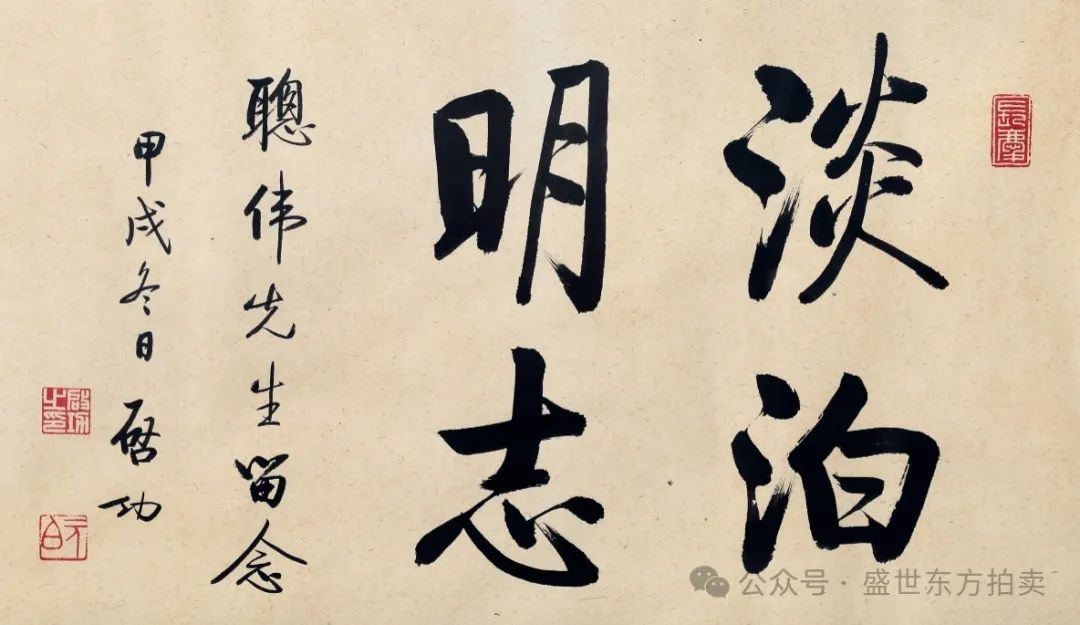 淡泊
明志
聰伟先生留念
甲戌冬日 启功
啟功之印
元白
公众号·盛世东方拍卖